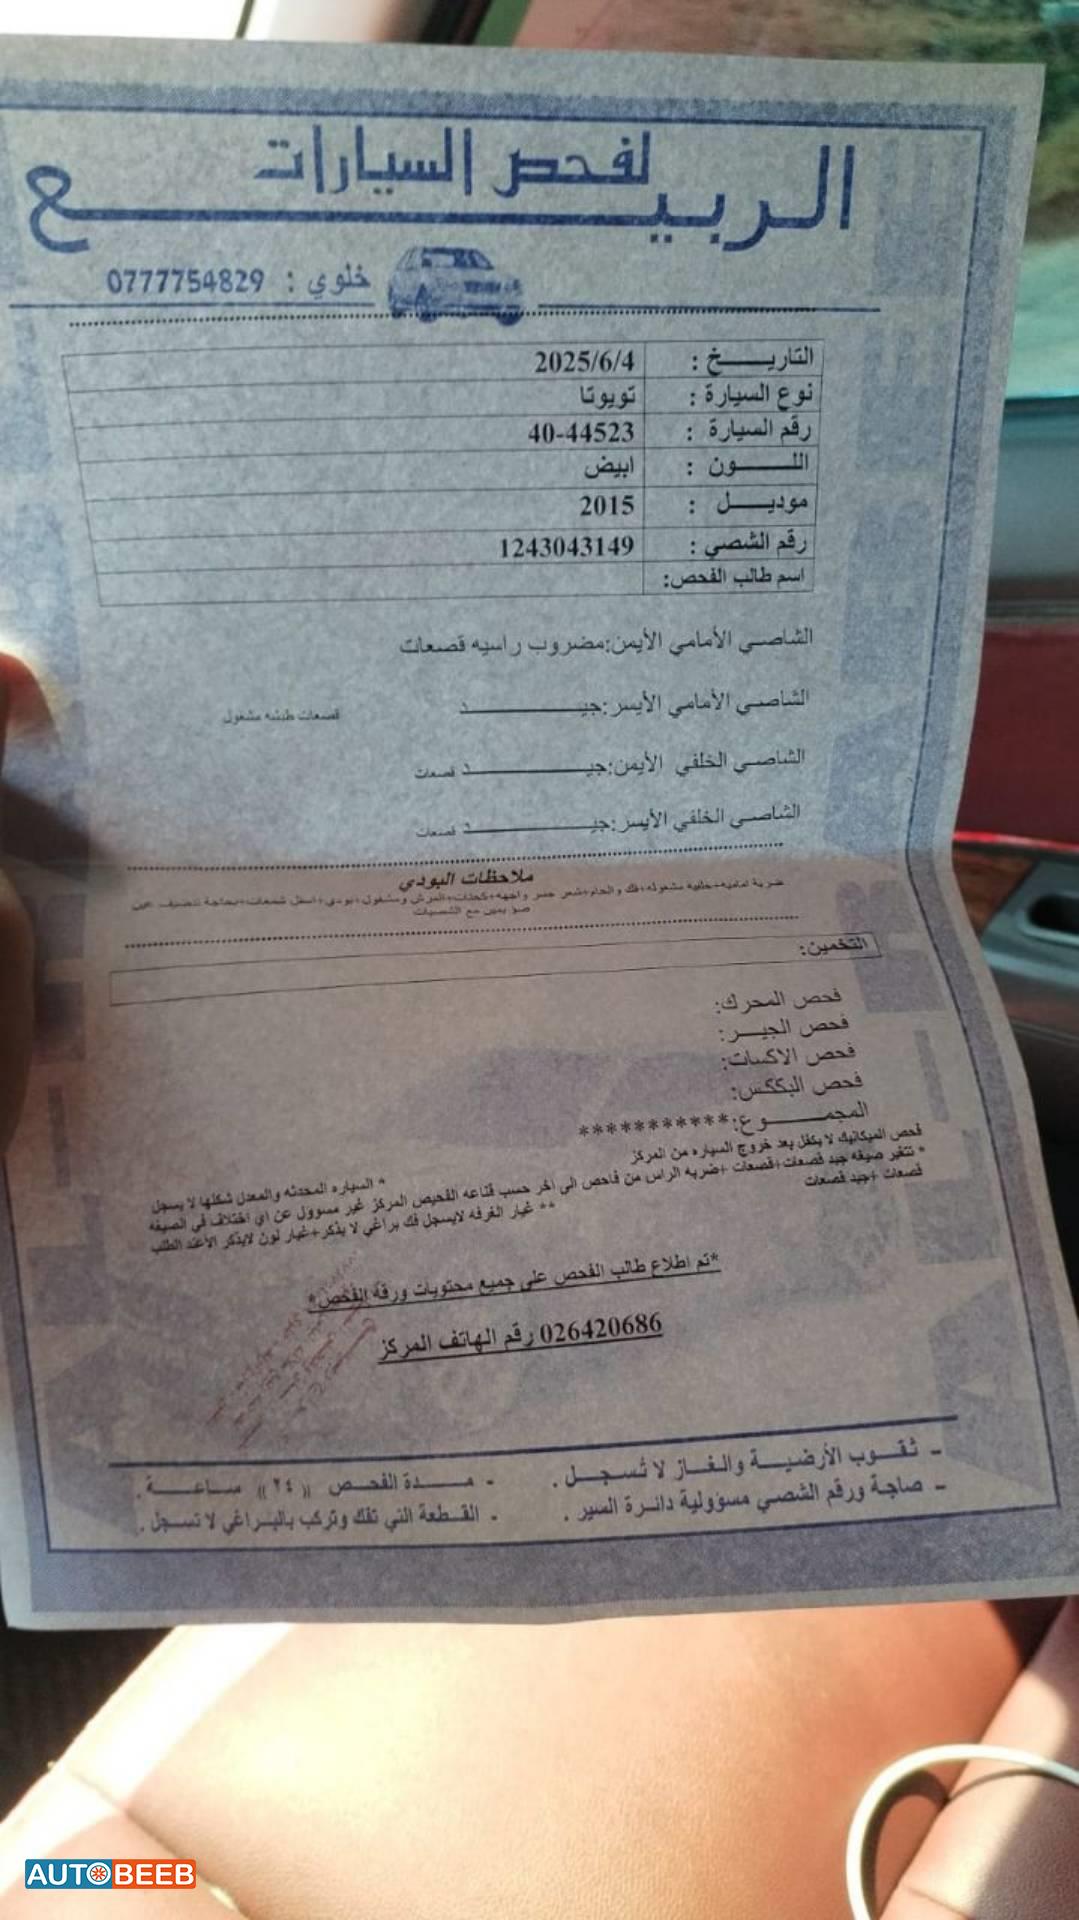 الربيع
لفحص السيارات
خلوي : 0777754829
التاريخ : 2025/6/4
نوع السيارة : تويوتا
رقم السيارة : 40-44523
اللون : ابيض
موديل : 2015
رقم الشصي : 1243043149
اسم طالب الفحص:
الشاصي الأمامي الأيمن:مضروب راسيه قصعات
الشاصي الأمامي الأيسر:جيد قصعات طبشه مشغول
الشاصي الخلفي الأيمن:جيد قصعات
الشاصي الخلفي الأيسر:جيد قصعات
ملاحظات البودي
ضربة اماميه+خلفيه مشغوله+فك والحام+شعر جسر واجهه+كحتات+الفرش ومشغول+بودي+اسفل شمعات+بحاجة تنضيف عين
ضو يمين مع الشصيات
التخمين:
فحص المحرك:
فحص الجير:
فحص الاكسات:
فحص البككس:
المجموع:***********
فحص الميكانيك لا يكفل بعد خروج السياره من المركز
* السياره المحدثه والمعدل شكلها لا يسجل
* تتغير صيغه جيد قصعات+قصعات +ضربه الراس من فاحص الى آخر حسب قناعه الفحيص المركز غير مسوول عن اي اختلاف في الصيغه
قصعات +جيد قصعات
** غيار الغرفه لايسجل فك براغي لا يذكر+غيار لون لايذكر الاعند الطلب
*تم اطلاع طالب الفحص على جميع محتويات ورقة الفحص*
026420686 رقم الهاتف المركز
- ثقوب الأرضية والغاز لا تسجل .
- مدة الفحص (( ٢٤ )) ساعة .
- صاجة ورقم الشصي مسؤولية دائرة السير .
- القطعة التي تفك وتركب بالبراغي لا تسجل .
AUTOBEEB